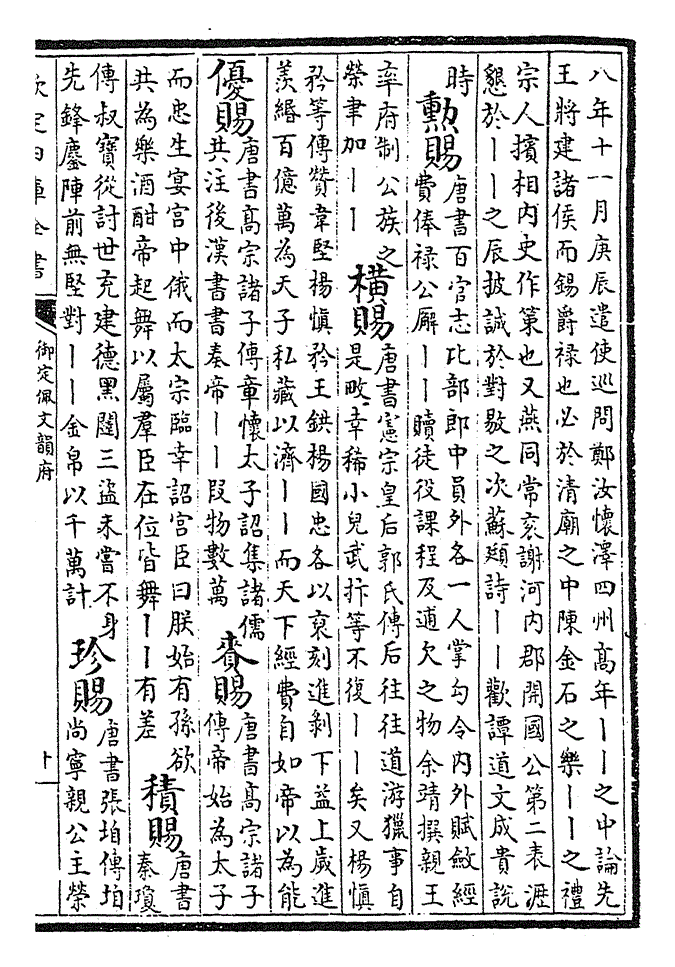 八年十一月庚辰遣使巡問鄭汝懷澤四州高年丨丨之中論先
王將建諸侯而錫爵祿也必於清廟之中陳金石之樂丨丨之禮
宗人擯相内史作策也又燕同常衮謝河内郡開國公第二表涯
懇於丨丨之辰披誠於對敭之次蘇頲詩丨丨歡譚道文成貴說
時
勲賜
唐書百官志比部郎中員外各一人掌勾令内外賦斂經
費俸祿公廨丨丨贖徒役課程及逋欠之物余靖撰親王
率府制公族之
榮聿加丨丨
橫賜
唐書憲宗皇后郭氏傳后往往道游獵事自
是畋幸稀小兒武抃等不復丨丨矣又楊慎
矜等傳贊韋堅楊慎矜王鉷楊國忠各以裒刻進剝下益上歲進
羨緡百億萬為天子私藏以濟丨丨而天下經費自如帝以為能
優賜
唐書高宗諸子傳章懷太子詔集諸儒
共注後漢書書奏帝丨丨段物數萬
賚賜
唐書高宗諸子
傳帝始為太子
而忠生宴宫中俄而太宗臨幸詔宫臣曰朕始有孫欲
共為樂酒酣帝起舞以屬羣臣在位皆舞丨丨有差
積賜
唐書
秦瓊
傳叔寶從討世充建德黑闥三盜未嘗不身
先鋒鏖陣前無堅對丨丨金帛以千萬計
珍賜
唐書張垍傳垍
尚寧親公主榮
欽定四庫全書
御定佩文韻府
十